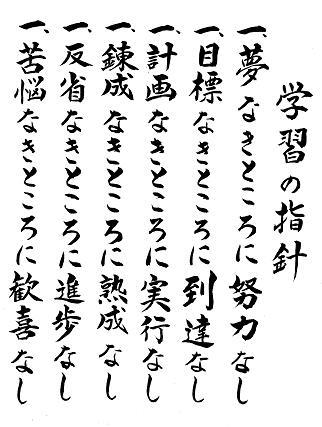 学習の指針
一、夢なきところに努力なし
一、目標なきところに到達なし
一、計画なきところに実行なし
一、錬成なきところに熟成なし
一、反省なきところに進歩なし
一、苦悩なきところに歓喜なし